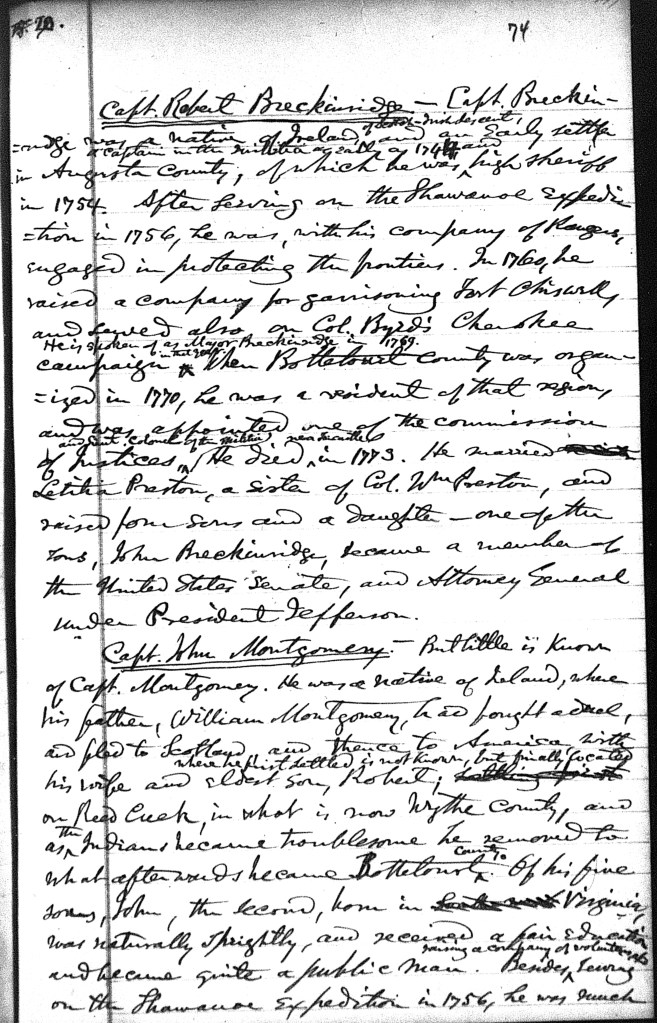 74
Capt. Robert Breckinridge — Capt. Breckin-
of Scotch-Irish descent,
=ridge was a native of Ireland, and an early settler
a captain in the militia as early as 1744 and
in Augusta County, of which he was high sheriff
in 1754. After serving on the Shawanoe Expedi-
=tion in 1756, he was, with his company of Rangers,
engaged in protecting the frontiers. In 1760, he
raised a company for garrisoning Fort Chiswell,
and served also on Col. Byrd's Cherokee
He is spoken of as Major Breckinridge in 1769.
campaign When Bottetourt County was organ-
=ized in 1770, he was a resident of that region,
and was appointed one of the commission
and Lieut. Colonel of the militia,
of Justices, He died, in 1773. He married
Letitia Preston, a sister of Col. Wm Preston, and
raised four sons and a daughter — one of the
sons, John Breckinridge, became a member of
the United States Senate, and Attorney General
under President Jefferson.
Capt. John Montgomery. — But little is known
of Capt. Montgomery. He was a native of Ireland, where
his father, William Montgomery, had fought a duel,
and fled to Scotland and thence to America, with
where he first settled is not known, but finally located
his wife and eldest son, Robert,
on Reed Creek, in what is now Wythe County, and
the
as Indians became troublesome he removed to
County
what afterwards became Bottetourt. Of his five
sons, John, the second, born in Virginia,
was naturally sprightly, and received a fair education
raising a company of volunteers
and became quite a public man. Besides, serving
on the Shawanoe Expedition in 1756, he was much